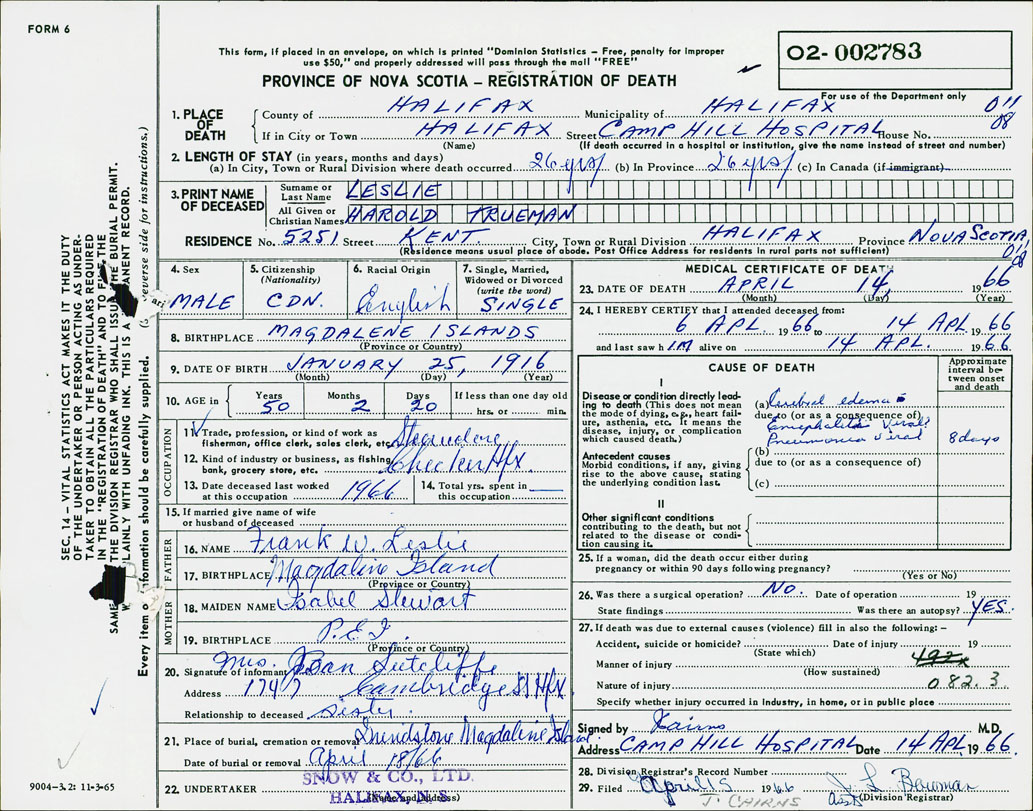 FORM 6
This form, if placed in an envelope, on which is printed "Dominion Statistics – Free, penalty for improper
use $50," and properly addressed will pass through the mail "FREE"
PROVINCE OF NOVA SCOTIA – REGISTRATION OF DEATH
02- 002783
For use of the Department only
1. PLACE OF DEATH
County of HALIFAX Municipality of HALIFAX 011
If in City or Town HALIFAX Street CAMP HILL HOSPITAL House No. 08
(Name) (If death occurred in a hospital or institution, give the name instead of street and number)
2. LENGTH OF STAY (in years, months and days)
(a) In City, Town or Rural Division where death occurred 26 yrs/ (b) In Province 26 yrs/ (c) In Canada (if immigrant)
3. PRINT NAME OF DECEASED
Surname or Last Name LESLIE
All Given or Christian Names HAROLD TRUEMAN
RESIDENCE No. 5251 Street KENT. City, Town or Rural Division HALIFAX Province NOVA SCOTIA
(Residence means usual place of abode. Post Office Address for residents in rural parts not sufficient) 011
08
4. Sex MALE
5. Citizenship (Nationality) CDN.
6. Racial Origin English
7. Single, Married, Widowed or Divorced (write the word) SINGLE
8. BIRTHPLACE MAGDALENE ISLANDS
(Province or Country)
9. DATE OF BIRTH JANUARY 25, 1916
(Month) (Day) (Year)
10. AGE in Years 50 Months 2 Days 20 If less than one day old hrs. or min.
OCCUPATION
11. Trade, profession, or kind of work as
fisherman, office clerk, sales clerk, etc. Stevedore
12. Kind of industry or business, as fishing,
bank, grocery store, etc. Checker Hfx
13. Date deceased last worked
at this occupation 1966
14. Total yrs. spent in
this occupation
15. If married give name of wife
or husband of deceased
FATHER
16. NAME Frank W. Leslie
17. BIRTHPLACE Magdaline Island
(Province or Country)
MOTHER
18. MAIDEN NAME Isabel Stewart
19. BIRTHPLACE P.E.I.
(Province or Country)
20. Signature of informant Mrs. Joan Sutcliffe
Address 1747 Cambridge St Hfx.
Relationship to deceased sister
21. Place of burial, cremation or removal Grindstone Magdaline Island
Date of burial or removal April 18/66
22. UNDERTAKER SNOW & CO., LTD.
HALIFAX, N.S.
(Name and Address)
MEDICAL CERTIFICATE OF DEATH
23. DATE OF DEATH APRIL 14, 1966
(Month) (Day) (Year)
24. I HEREBY CERTIFY that I attended deceased from:
6 APL. 1966 to 14 APL 1966
and last saw h IM alive on 14 APL. 1966.
CAUSE OF DEATH
Approximate interval between onset and death
I
Disease or condition directly leading to death (This does not mean the mode of dying, e.g., heart failure, asthenia, etc. It means the disease, injury, or complication which caused death.)
(a) Cerebral edema
due to (or as a consequence of)
Encephalitis Viral?
Pneumonia Viral 8 days
Antecedent causes
Morbid conditions, if any, giving rise to the above cause, stating the underlying condition last.
(b)
due to (or as a consequence of)
(c)
II
Other significant conditions
contributing to the death, but not related to the disease or condition causing it.
25. If a woman, did the death occur either during
pregnancy or within 90 days following pregnancy?
(Yes or No)
26. Was there a surgical operation? NO. Date of operation 19
State findings Was there an autopsy? YES.
27. If death was due to external causes (violence) fill in also the following: –
Accident, suicide or homicide? Date of injury 19
(State which)
Manner of injury 492x
(How sustained)
Nature of injury 082.3
Specify whether injury occurred in Industry, in home, or in public place
Signed by Kairns M.D,
Address CAMP HILL HOSPITAL Date 14 APL 1966.
28. Division Registrar's Record Number
29. Filed April 15 1966 J L Bowman
J. CAIRNS Asst (Division Registrar)
SEC. 14 – VITAL STATISTICS ACT MAKES IT THE DUTY
OF THE UNDERTAKER OR PERSON ACTING AS UNDER-
TAKER TO OBTAIN ALL THE PARTICULARS REQUIRED
IN THE "REGISTRATION OF DEATH" AND TO FILE THE
SAME THE DIVISION REGISTRAR WHO SHALL ISSUE THE BURIAL PERMIT.
LAINLY WITH UNFADING INK. THIS IS A ANENT RECORD.
Every item o nformation should be carefully supplied. everse side for instructions.)
9004–3.2: 11-3-65